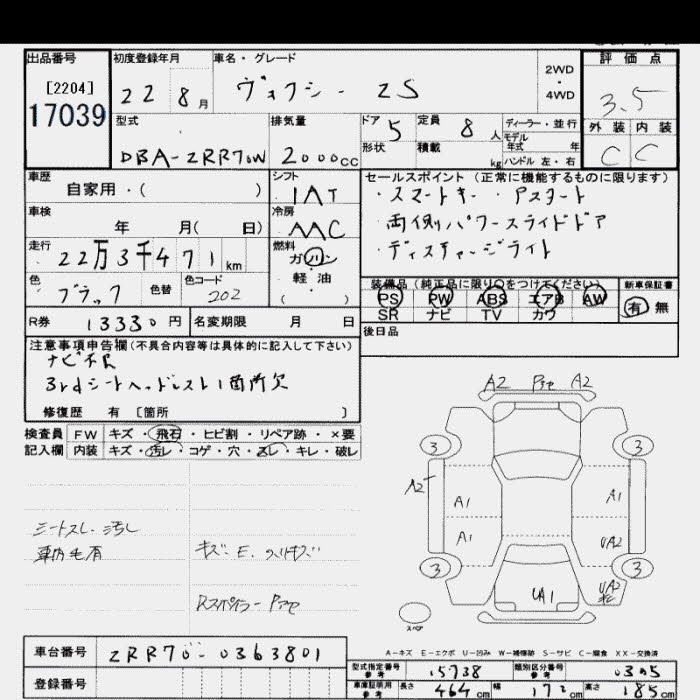 出品番号 初度登録年月 車名・グレード 評価点
[2204] 22 8月 ヴォクシー ZS 2WD・4WD 3.5
17039 型式 排気量 ドア 5 定員 8人 ディーラー・並行 外装 内装
モデル年式 年
DBA-ZRR70W 2000cc 形状 積載 kg ハンドル 左・右 C C
車歴 シフト セールスポイント (正常に機能するものに限ります)
自家用・( ) IAT ・スマートキー ・Pスタート
車検 冷房 ・両側パワースライドドア
年 月( 日) AAC ・ディスチャージライト
走行 燃料
22万3千471km ガソリン
色 色替 色コード 軽油 装備品(純正品に限り〇をつけてください) 新車保証書
ブラック 202 ( ) PS PW ABS エアB AW 有 無
SR ナビ TV カワ
R券 13330円 名変期限 月 日 後日品
注意事項申告欄(不具合内容等は具体的に記入して下さい)
ナビ不良
3rdシートヘッドレスト1箇所欠
修復歴 有 [箇所 ]
検査員 FW キズ・飛石・ヒビ割・リペア跡・×要
記入欄 内装 キズ・汚レ・コゲ・穴・スレ・キレ・破レ
A2 Pアセ A2
3 3
A2 A1 A1
A1 UA2
3 3
UA1 UA2
シートスレ・汚レ
車内毛有 キズ・E.スリキズ
Rスポイラー Pアセ
スペア
A-キズ E-エクボ U-凹み W-補修跡 S-サビ C-腐食 XX-交換済
車台番号 ZRR70-0363801
型式指定番号 参考 15738 類別区分番号 参考 0305
登録番号 車庫証明用 参考 長さ 464cm 幅 172cm 高さ 185cm